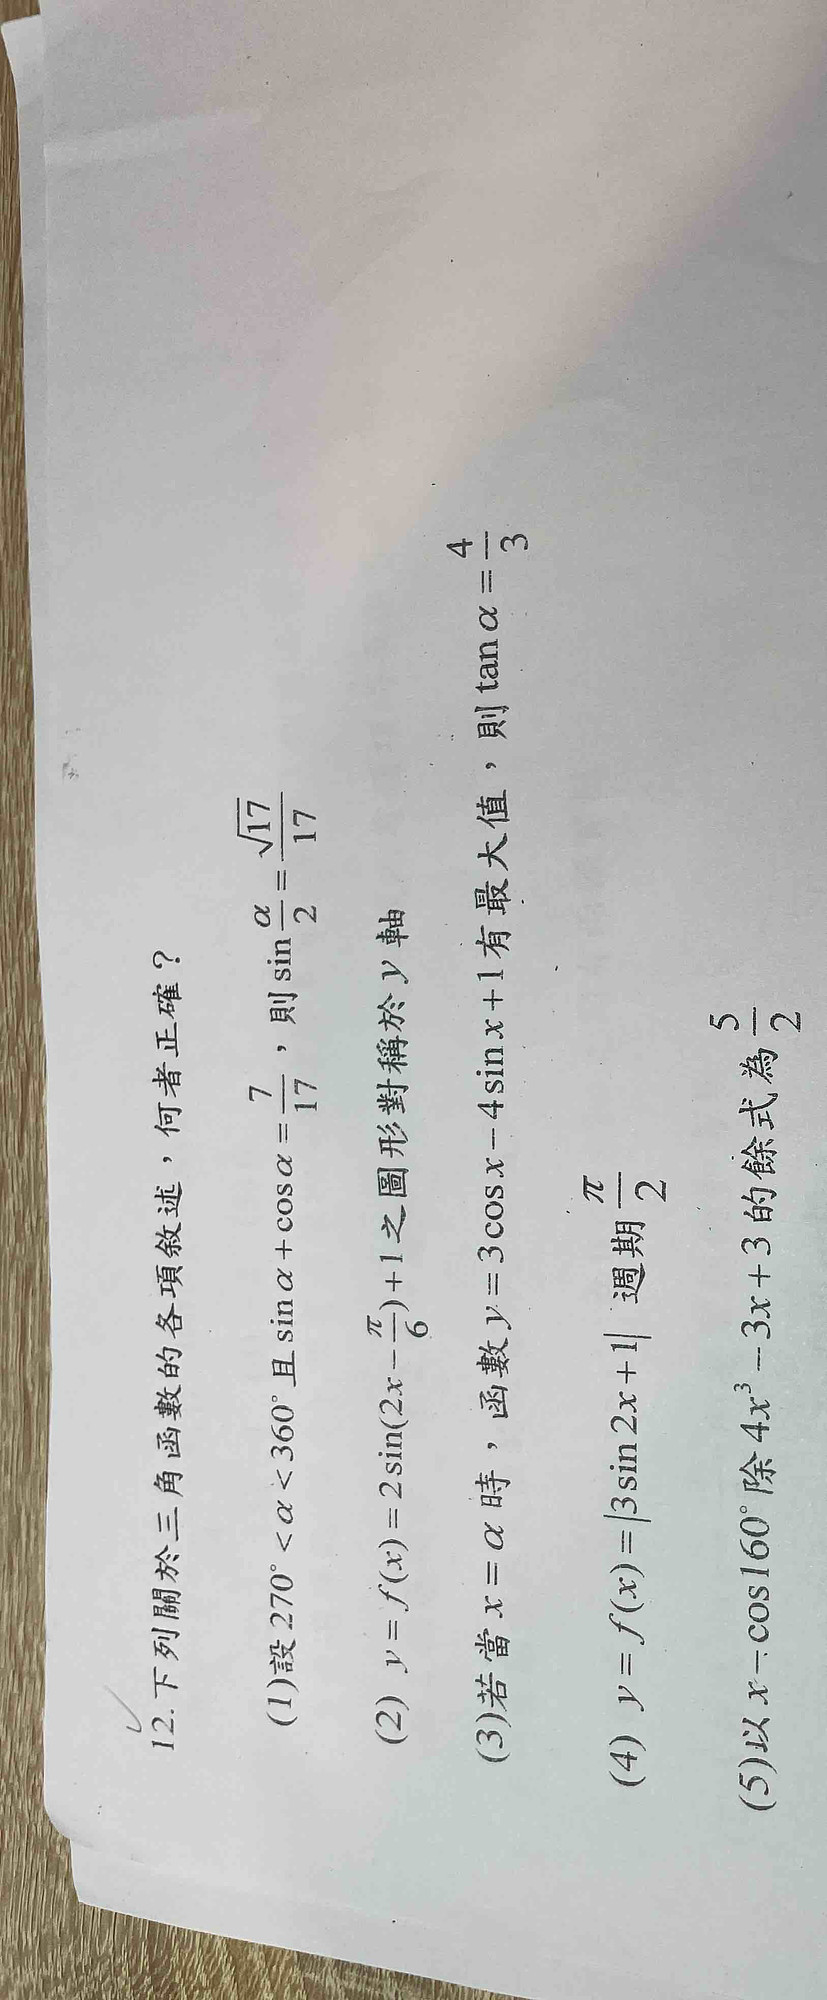 12.下列關於三角函數的各項敘述，何者正確？
(1)設 270° < α < 360° 且 sin α + cos α = 7/17，則 sin α/2 = √17/17
(2) y = f(x) = 2 sin(2x − π/6) + 1 之圖形對稱於 y 軸
(3)若當 x = α 時，函數 y = 3 cos x − 4 sin x + 1 有最大值，則 tan α = 4/3
(4) y = f(x) = |3 sin 2x + 1| 週期 π/2
(5)以 x − cos 160° 除 4x³ − 3x + 3 的餘式為 5/2